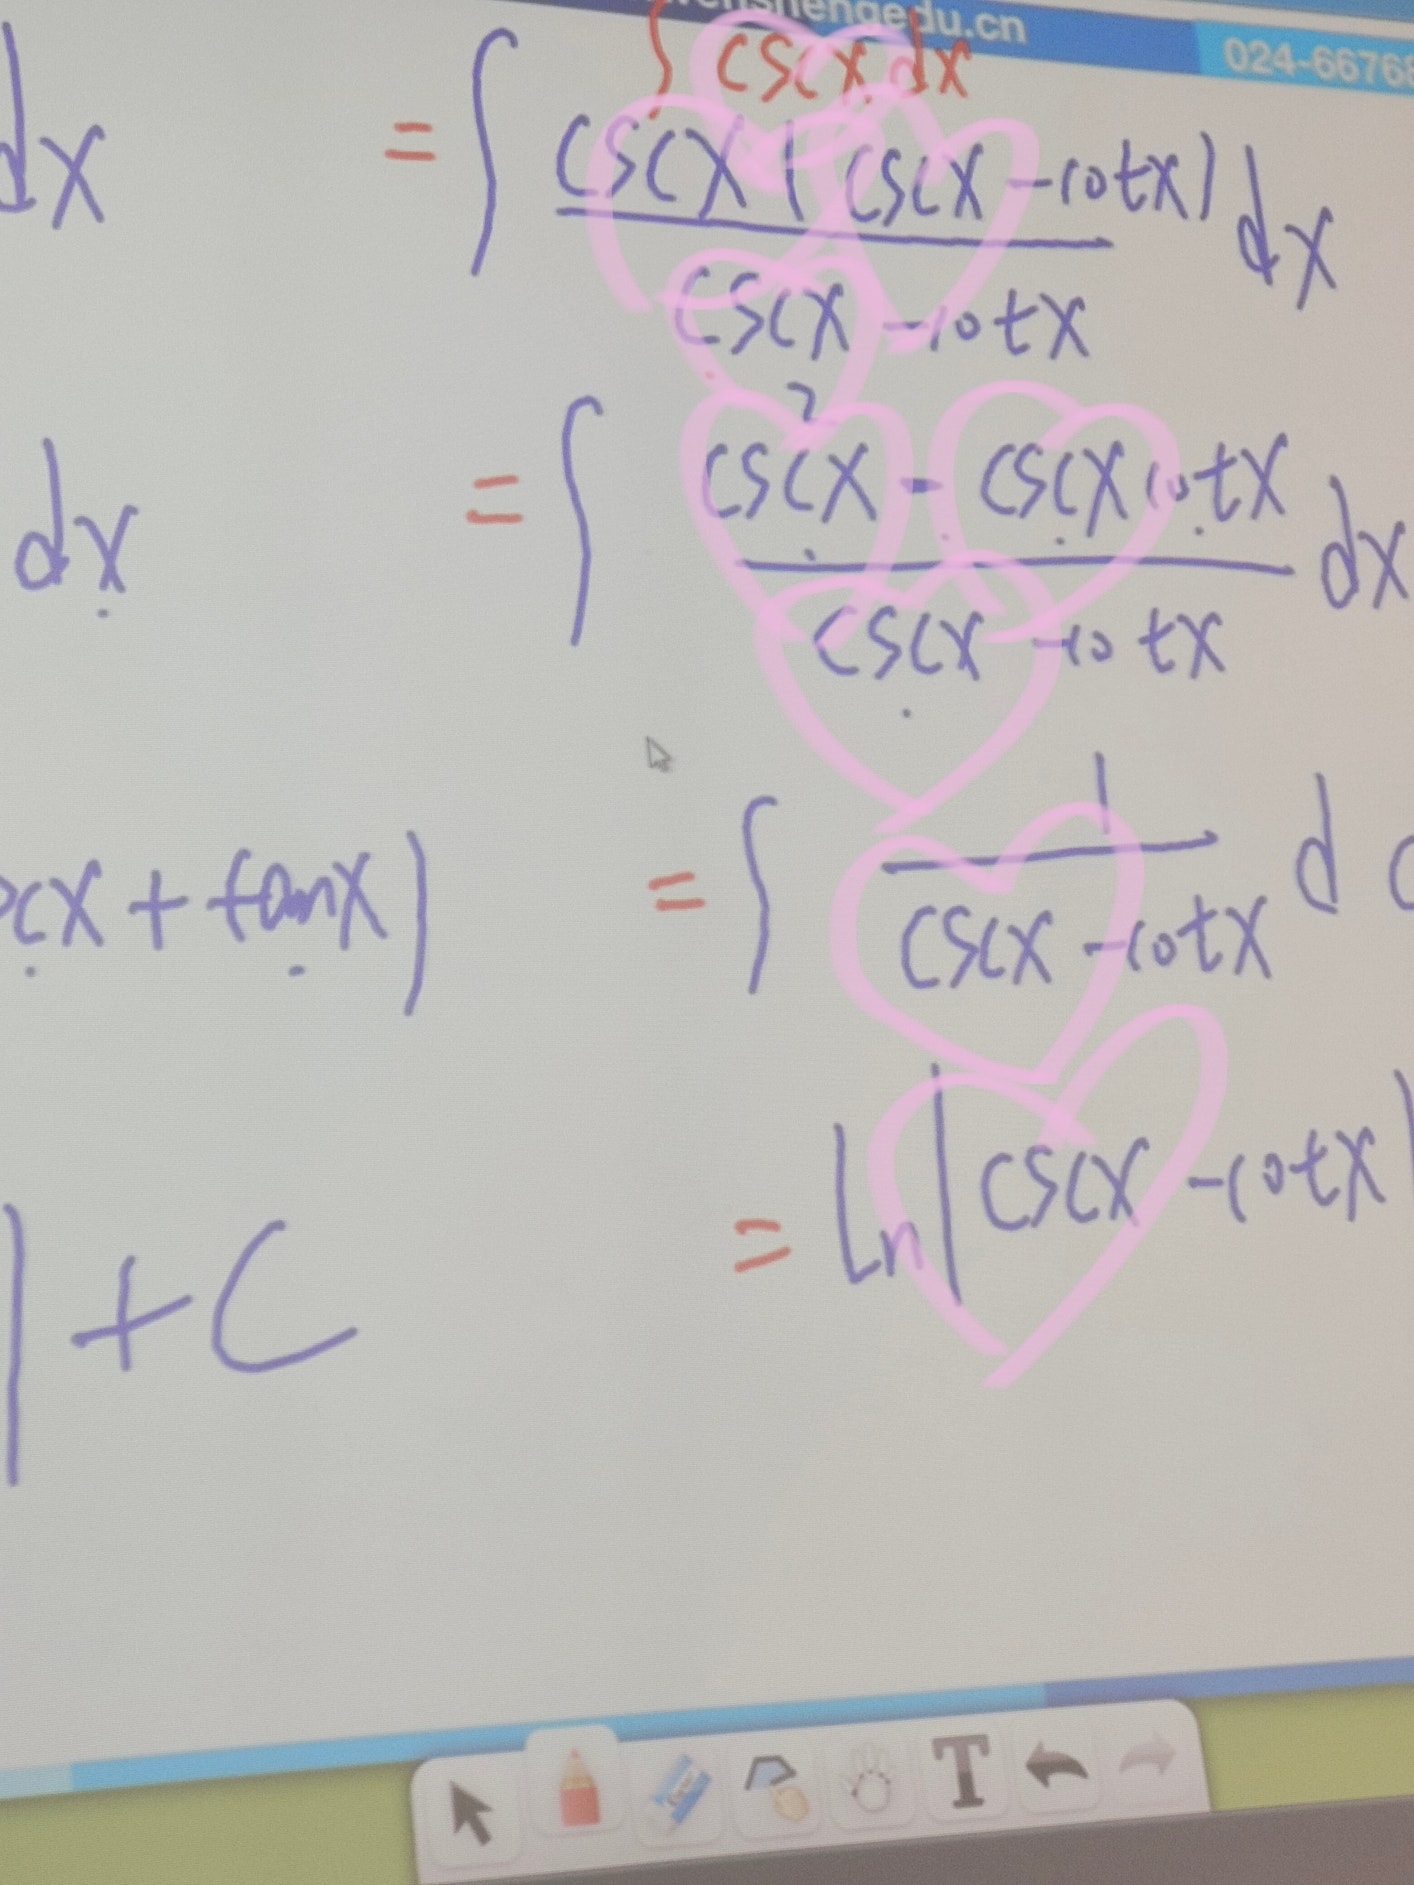 enshengedu.cn
024-66768
∫ cscx dx
dx = ∫ cscx(cscx - cotx) / cscx - cotx dx
dx = ∫ csc²x - cscx cotx / cscx - cotx dx
cx + tanx) = ∫ 1 / cscx - cotx d
| + C = Ln|cscx - cotx|
T